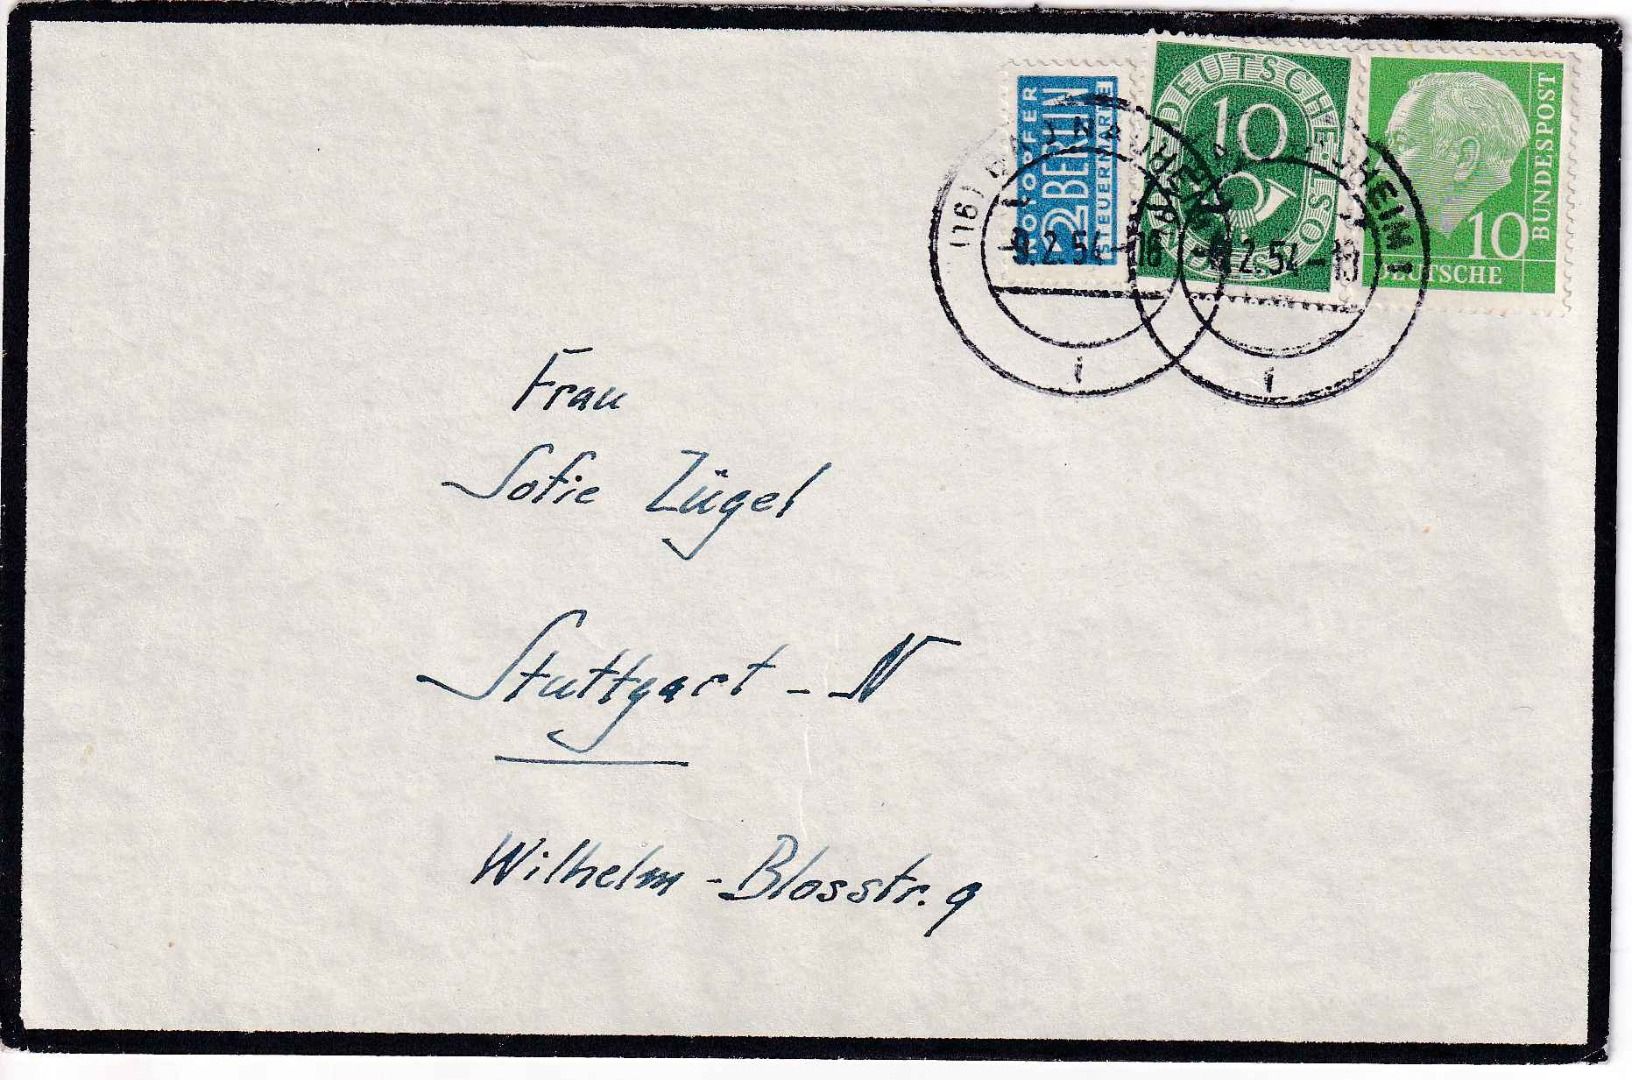 NOTOPFER
2 BERLIN
STEUERMARKE
DEUTSCHE POST
10
DEUTSCHE
BUNDESPOST
10
9.2.54-16
2.54-13
i
i
Frau
Sofie Zügel
Stuttgart - N
Wilhelm - Blosstr. 9